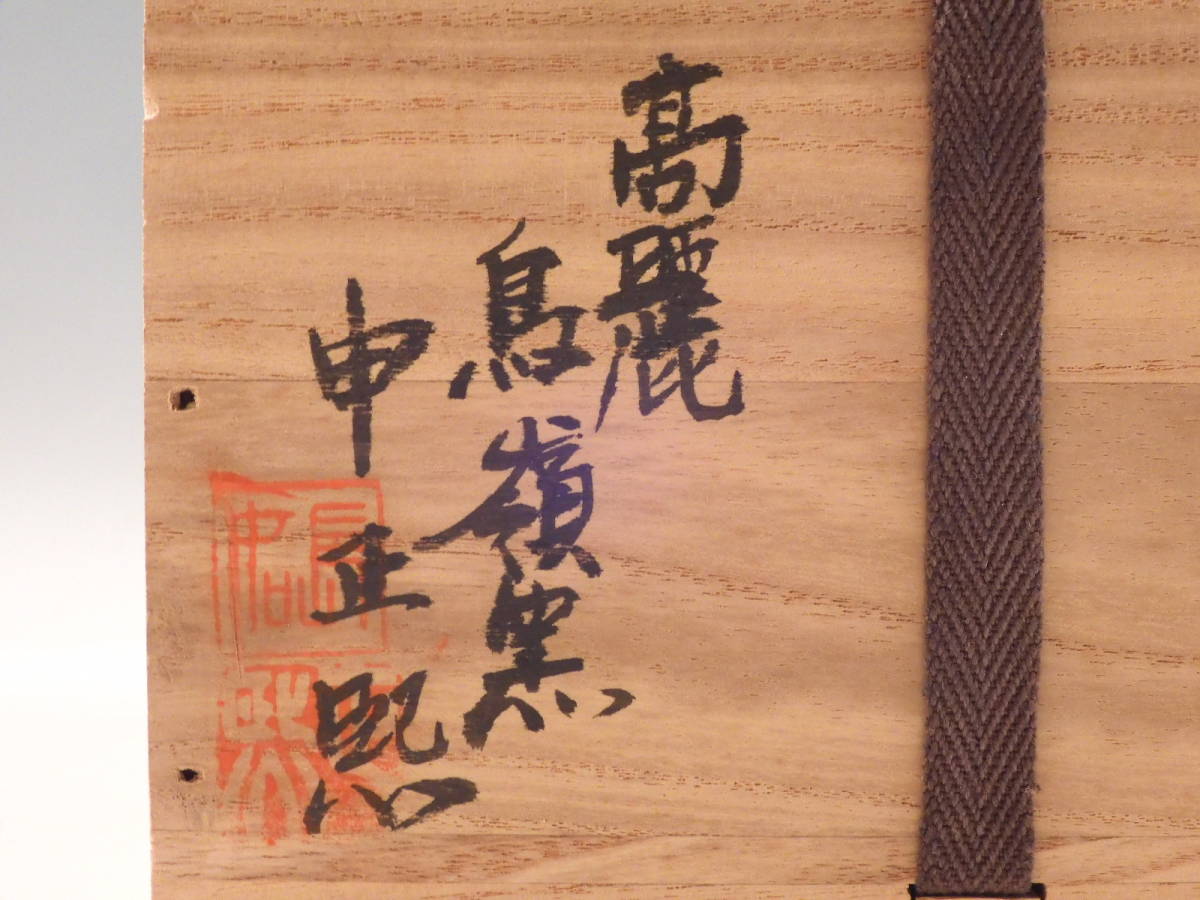 高麗
鳥嶺窯
申正熙